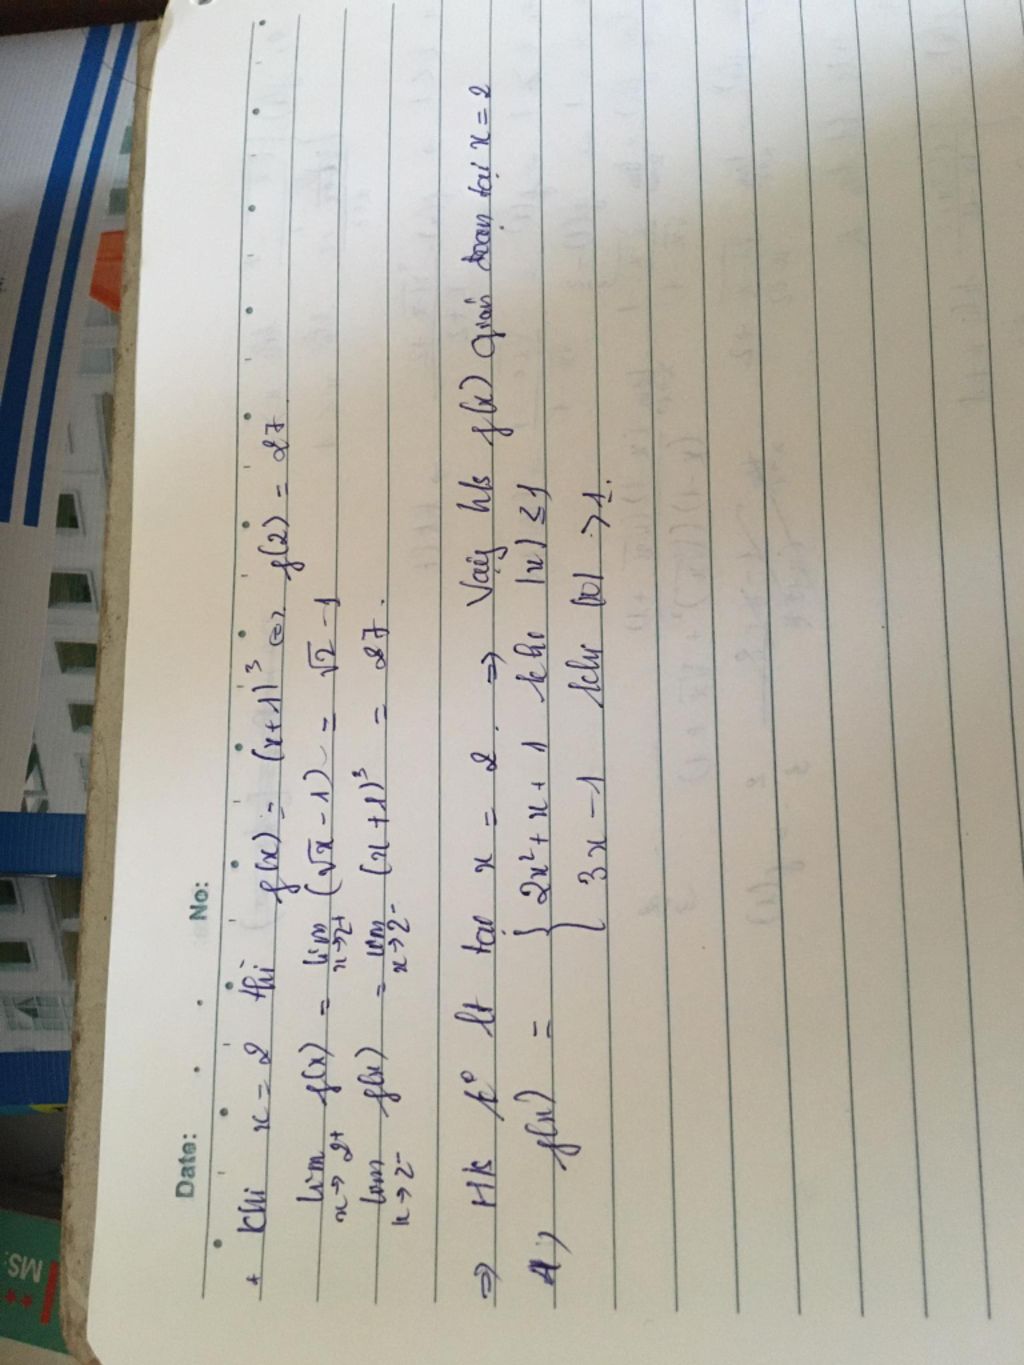 Date: No:
* Khi x = 2 thì f(x) = (x+1)³ ⇔ f(2) = 27
lim x→2+ f(x) = lim x→2+ (√x - 1) = √2 - 1
lim x→2- f(x) = lim x→2- (x+1)³ = 27.
⇒ Hk k° lt tại x = 2. ⇒ Vậy hk f(x) gián đoạn tại x = 2
4, f(x) = { 2x² + x + 1 khi |x| ≤ 1
3x - 1 khi |x| > 1.
MS: